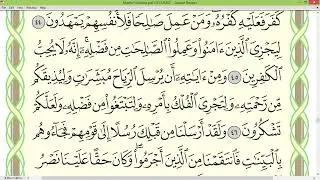 كَفَرَ فَعَلَيْهِ كُفْرُهُۥ ۖ وَمَنْ عَمِلَ صَٰلِحًا فَلِأَنفُسِهِمْ يَمْهَدُونَ ٤٤
لِيَجْزِيَ ٱلَّذِينَ ءَامَنُوا۟ وَعَمِلُوا۟ ٱلصَّٰلِحَٰتِ مِن فَضْلِهِۦٓ ۚ إِنَّهُۥ لَا يُحِبُّ
ٱلْكَٰفِرِينَ ٤٥ وَمِنْ ءَايَٰتِهِۦٓ أَن يُرْسِلَ ٱلرِّيَاحَ مُبَشِّرَٰتٍ وَلِيُذِيقَكُم
مِّن رَّحْمَتِهِۦ وَلِتَجْرِيَ ٱلْفُلْكُ بِأَمْرِهِۦ وَلِتَبْتَغُوا۟ مِن فَضْلِهِۦ وَلَعَلَّكُمْ
تَشْكُرُونَ ٤٦ وَلَقَدْ أَرْسَلْنَا مِن قَبْلِكَ رُسُلًا إِلَىٰ قَوْمِهِمْ فَجَآءُوهُم
بِٱلْبَيِّنَٰتِ فَٱنتَقَمْنَا مِنَ ٱلَّذِينَ أَجْرَمُوا۟ ۖ وَكَانَ حَقًّا عَلَيْنَا نَصْرُ